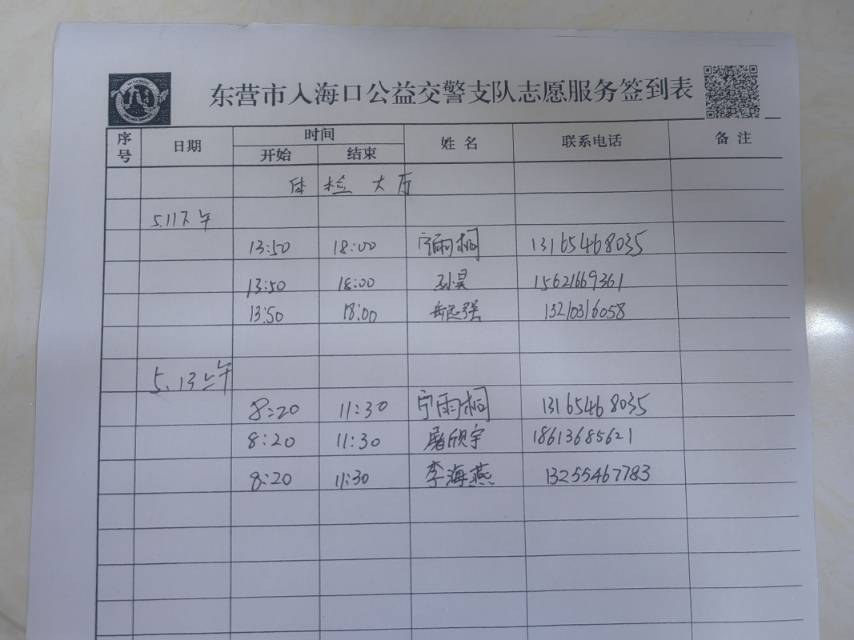 东营市入海口公益交警支队志愿服务签到表
序号 日期 时间 姓名 联系电话 备注
开始 结束
体检大厅
5.11下午
13:50 18:00 宁雨桐 13165468035
13:50 18:00 孙昊 15621669361
13:50 18:00 岳志强 13210316058
5.13上午
8:20 11:30 宁雨桐 13165468035
8:20 11:30 屠欣宇 18613685621
8:20 11:30 李海燕 13255467783